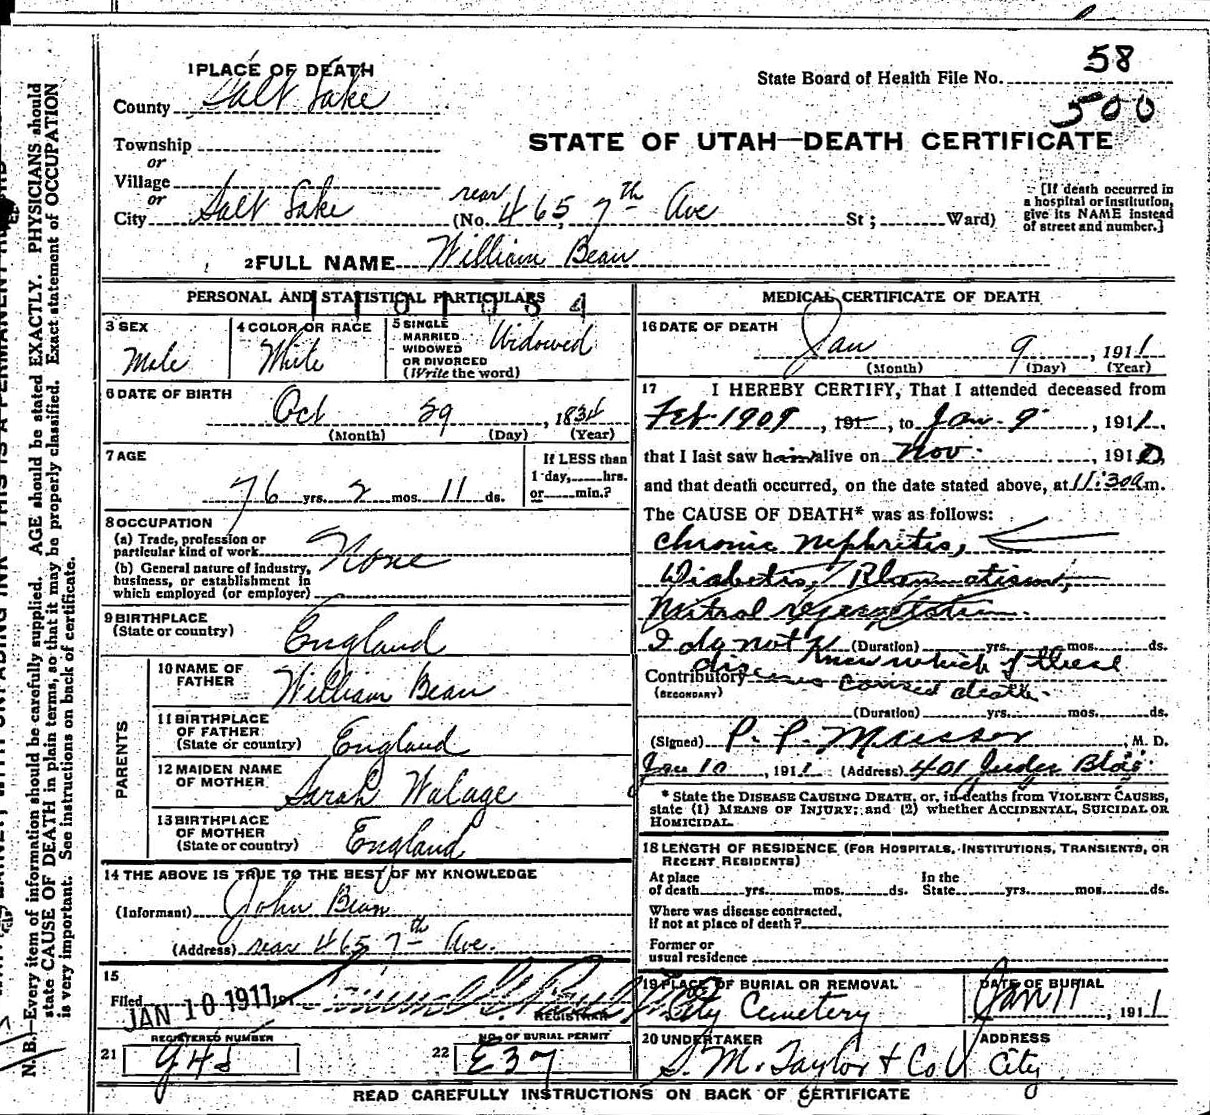 58
1 PLACE OF DEATH
State Board of Health File No.
500
County Salt Lake
STATE OF UTAH—DEATH CERTIFICATE
Township
or
Village
or
City Salt Lake (No. rear 465 7th Ave St; Ward)
[If death occurred in
a hospital or institution,
give its NAME instead
of street and number.]
2 FULL NAME William Bean
PERSONAL AND STATISTICAL PARTICULARS
3 SEX
Male
4 COLOR OR RACE
White
5 SINGLE
MARRIED
WIDOWED
OR DIVORCED
(Write the word)
Widowed
6 DATE OF BIRTH
Oct 29, 1834
(Month) (Day) (Year)
7 AGE
76 yrs. 2 mos. 11 ds.
If LESS than
1 day, hrs.
or min.?
8 OCCUPATION
(a) Trade, profession or
particular kind of work
None
(b) General nature of industry,
business, or establishment in
which employed (or employer)
9 BIRTHPLACE
(State or country)
England
PARENTS
10 NAME OF
FATHER
William Bean
11 BIRTHPLACE
OF FATHER
(State or country)
England
12 MAIDEN NAME
OF MOTHER
Sarah Walage
13 BIRTHPLACE
OF MOTHER
(State or country)
England
14 THE ABOVE IS TRUE TO THE BEST OF MY KNOWLEDGE
(Informant) John Bean
(Address) rear 465 7th Ave.
15
Filed JAN 10 1911 191
REGISTRAR
REGISTERED NUMBER
21
NO. OF BURIAL PERMIT
22 E37
MEDICAL CERTIFICATE OF DEATH
16 DATE OF DEATH
Jan 9, 1911
(Month) (Day) (Year)
17 I HEREBY CERTIFY, That I attended deceased from
Feb 1909, 191 , to Jan. 9, 1911,
that I last saw him alive on Nov., 1910,
and that death occurred, on the date stated above, at 11:30 a m.
The CAUSE OF DEATH* was as follows:
Chronic nephritis,
Diabetis, Rheumatism,
Mitral regurgitation.
I do not (Duration) yrs. mos. ds.
know which of these
Contributory diseases caused death.
(SECONDARY)
(Duration) yrs. mos. ds.
(Signed) P. P. Musser, M. D.
Jan 10, 1911 (Address) 401 Judge Bldg.
* State the DISEASE CAUSING DEATH, or, in deaths from VIOLENT CAUSES,
state (1) MEANS OF INJURY; and (2) whether ACCIDENTAL, SUICIDAL OR
HOMICIDAL.
18 LENGTH OF RESIDENCE (FOR HOSPITALS, INSTITUTIONS, TRANSIENTS, OR
RECENT RESIDENTS)
At place
of death yrs. mos. ds.
In the
State yrs. mos. ds.
Where was disease contracted,
if not at place of death?
Former or
usual residence
19 PLACE OF BURIAL OR REMOVAL
City Cemetery
DATE OF BURIAL
Jan 11, 1911
20 UNDERTAKER
S. M. Taylor & Co
ADDRESS
City
READ CAREFULLY INSTRUCTIONS ON BACK OF CERTIFICATE
N. B.—Every item of information should be carefully supplied. AGE should be stated EXACTLY. PHYSICIANS should
state CAUSE OF DEATH in plain terms, so that it may be properly classified. Exact statement of OCCUPATION
is very important. See instructions on back of certificate.